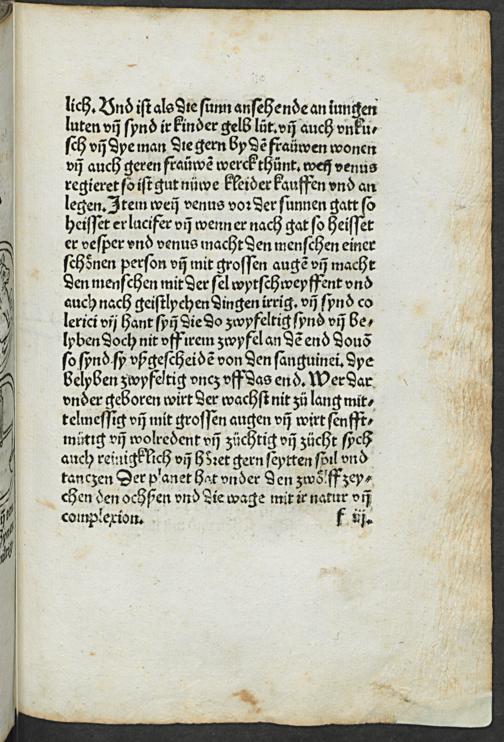 lich. Vnd ist als die sunn ansehende an iungen
luten vn̄ synd ir kinder gelb lüt. vn̄ auch vnku⸗
sch vn̄ dye man die gern by dē fraüwen wonen
vn̄ auch geren fraüwē werck thünt. wen̄ venus
regieret so ist gut nüwe kleider kauffen vnd an
legen. Item wen̄ venus vor der sunnen gatt so
heisset er lucifer vn̄ wenn er nach gat so heisset
er vesper vnd venus macht den menschen einer
schönen person vn̄ mit grossen augē vn̄ macht
den menschen mit der sel wytschweyffent vnd
auch nach geistlychen dingen irrig. vn̄ synd co
lerici vn̄ hant syn̄ die do zwyfeltig synd vn̄ be⸗
lyben doch nit vff irem zwyfel an dē end douō
so synd sy vßgescheidē von den sanguinei. dye
belyben zwyfeltig vncz vff das end. Wer dar
vnder geboren wirt der wachst nit zü lang mit⸗
telmessig vn̄ mit grossen augen vn̄ wirt senfft⸗
mütig vn̄ wolredent vn̄ züchtig vn̄ zücht sych
auch reinigklich vn̄ höret gern seytten spil vnd
tanczen Der planet hat vnder den zwölff zey⸗
chen den ochßen vnd die wage mit ir natur vn̄
complexion. f iij.